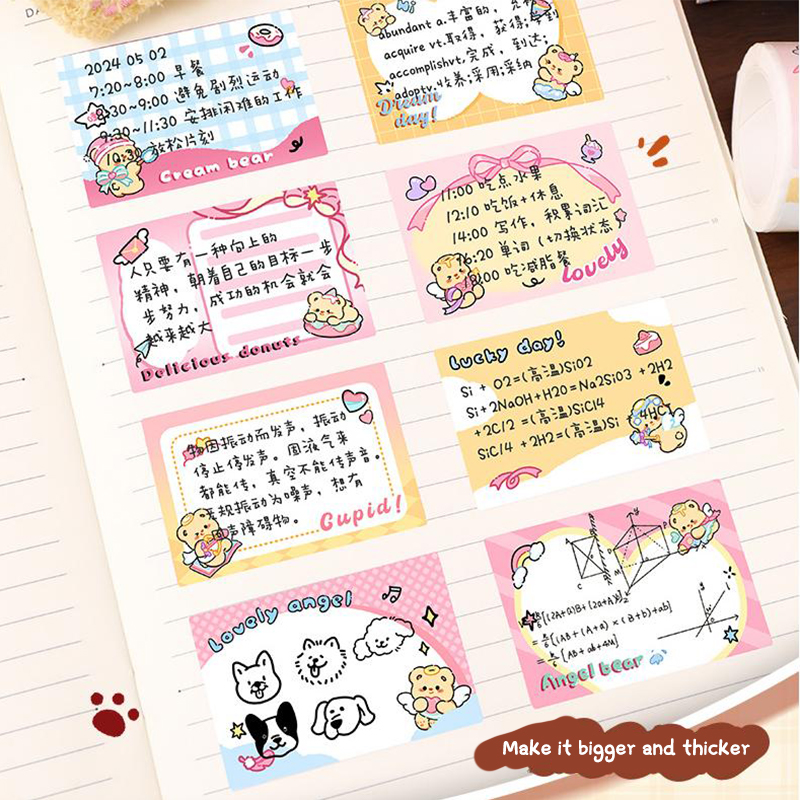 2024 05 02
7:20~8:00 早餐
8:30~9:00 避免剧烈运动
9:30~11:30 安排困难的工作
10:30 放松片刻
Cream bear
Hi
abundant a.丰富的,
acquire vt.取得, 获得;
accomplishvt.完成, 到达;
adoptv.收养;采用;采纳
Dream
day!
人只要有一种向上的
精神, 朝着自己的目标一步
步努力, 成功的机会就会
越来越大
Delicious donuts
11:00 吃点水果
12:10 吃饭+休息
14:00 写作, 积累词汇
16:20 单词 (切换状态)
18:00 吃减脂餐
Lovely
物因振动而发声, 振动
停止停发声。固液气来
都能传, 真空不能传声音。
无规振动为噪声, 想有
声障碍物。
Cupid!
Lucky day!
Si + O2=(高温)SiO2
Si+2NaOH+H2O=Na2SiO3 +2H2
+2C/2 =(高温)SiCl4
SiCl4 +2H2=(高温)Si +4HCl
Lovely angel
[(2A+a)B+(2a+A)b]
[(AB+(A+a)×(B+b)+ab]
[AB+ab+4M]
Angel bear
Make it bigger and thicker